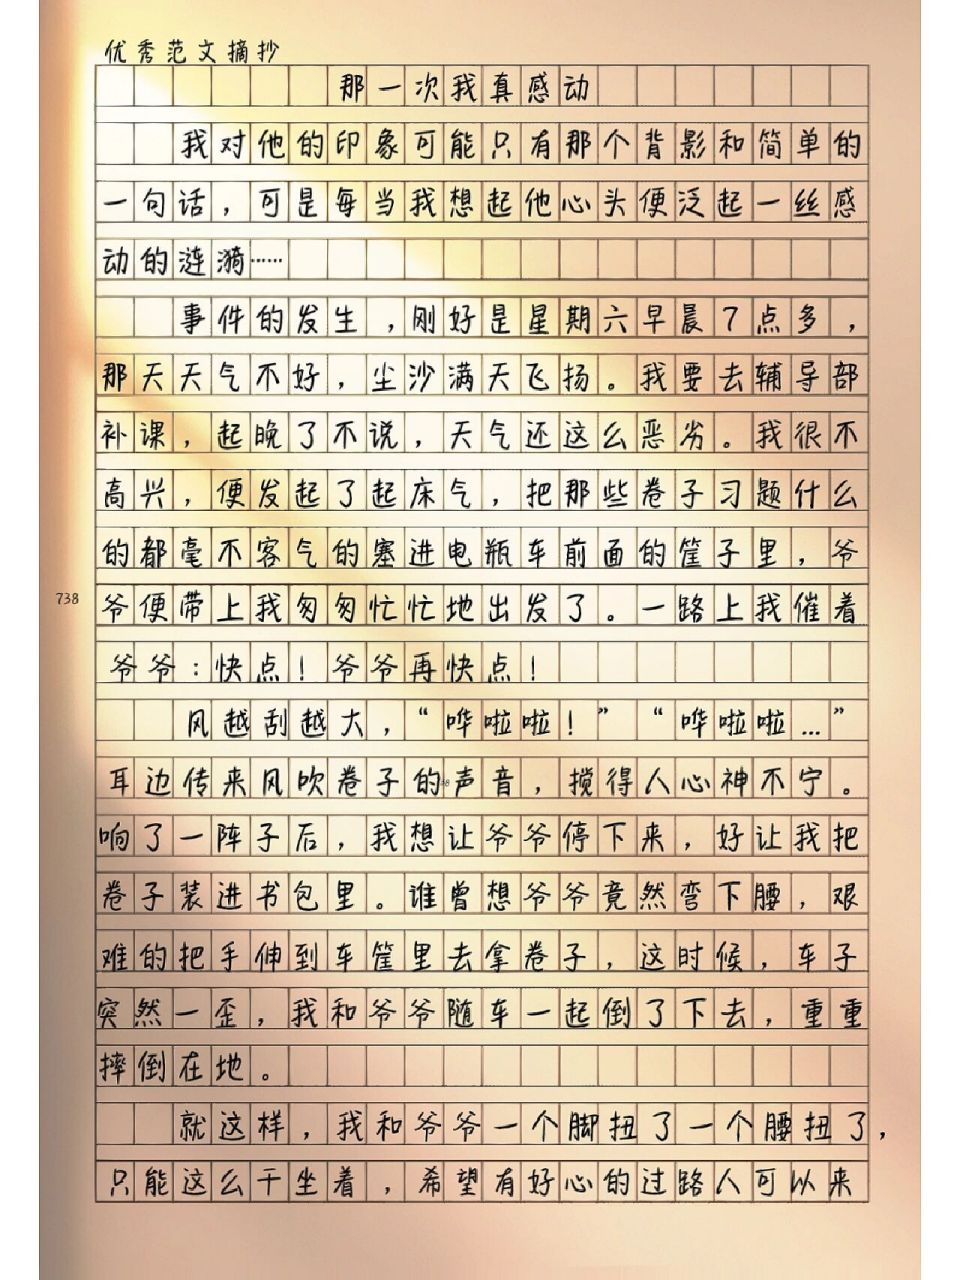 优秀范文摘抄
那一次我真感动
我对他的印象可能只有那个背影和简单的
一句话，可是每当我想起他心头便泛起一丝感
动的涟漪……
事件的发生，刚好是星期六早晨7点多，
那天天气不好，尘沙满天飞扬。我要去辅导部
补课，起晚了不说，天气还这么恶劣。我很不
高兴，便发起了起床气，把那些卷子习题什么
的都毫不客气的塞进电瓶车前面的筐子里，爷
738
爷便带上我匆匆忙忙地出发了。一路上我催着
爷爷：快点！爷爷再快点！
风越刮越大，“哗啦啦！”“哗啦啦…”
耳边传来风吹卷子的声音，搅得人心神不宁。
响了一阵子后，我想让爷爷停下来，好让我把
卷子装进书包里。谁曾想爷爷竟然弯下腰，艰
难的把手伸到车筐里去拿卷子，这时候，车子
突然一歪，我和爷爷随车一起倒了下去，重重
摔倒在地。
就这样，我和爷爷一个脚扭了一个腰扭了，
只能这么干坐着，希望有好心的过路人可以来